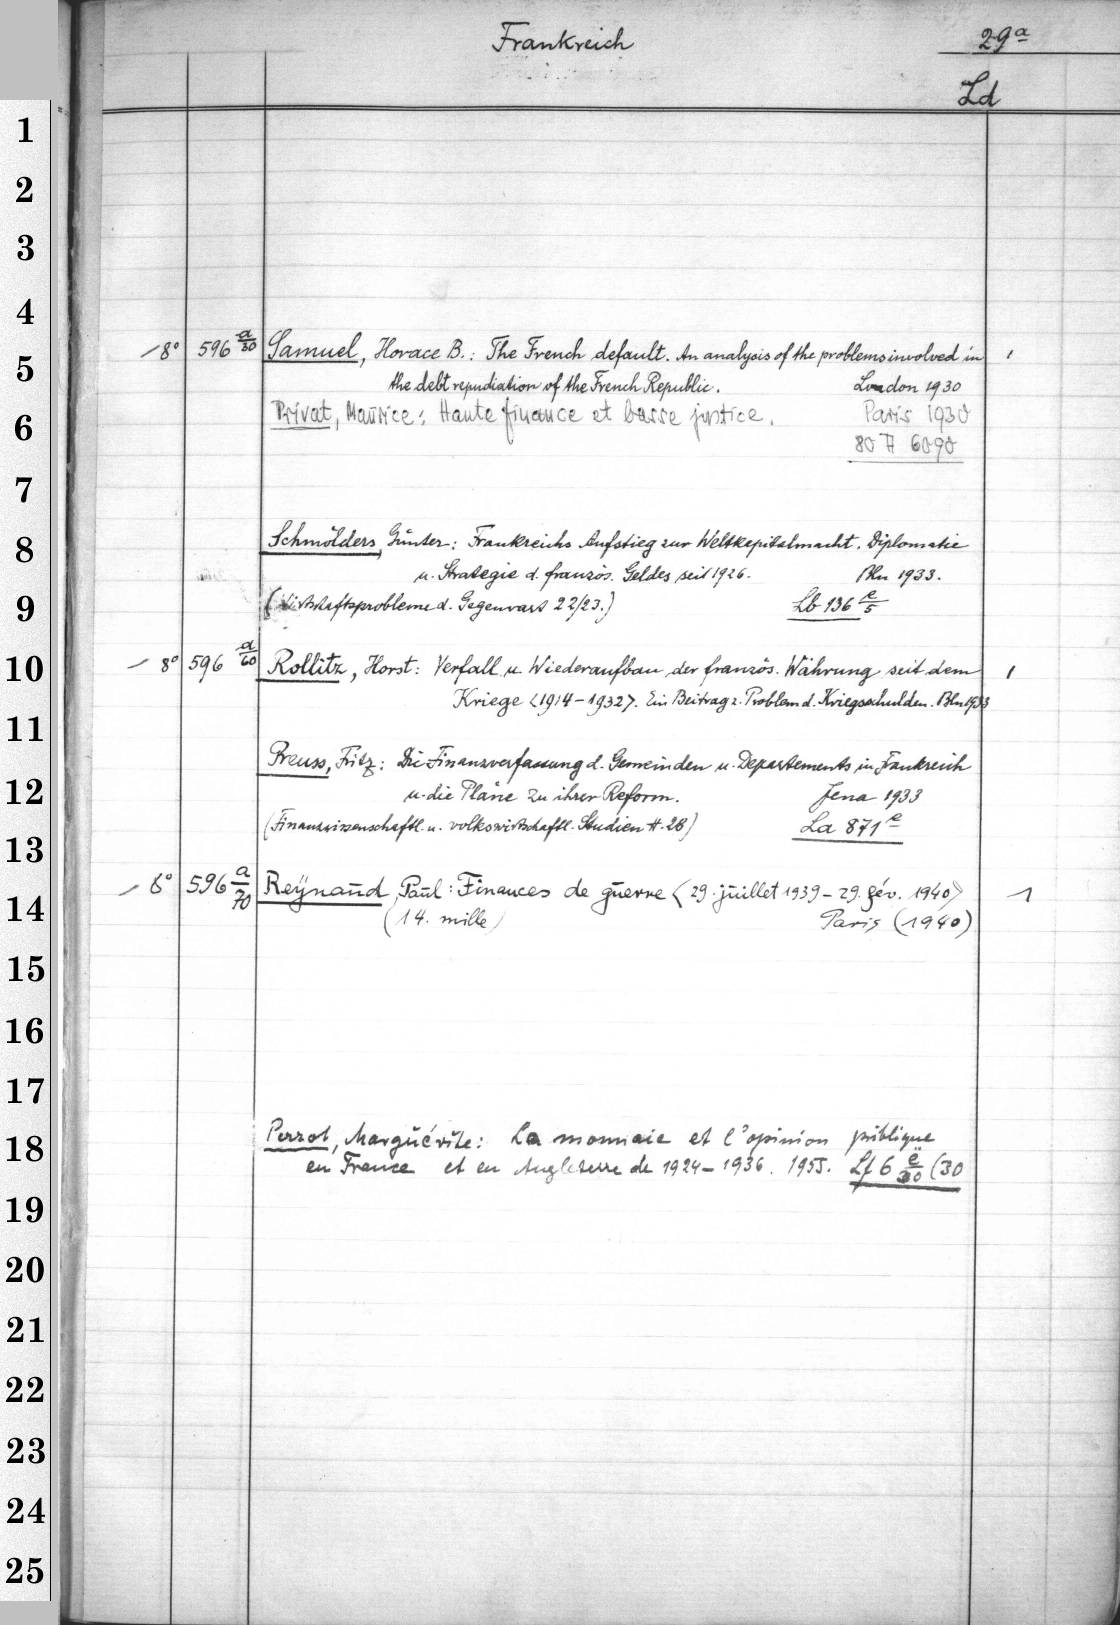 Frankreich 29a
Ld
1
2
3
4
8° 596 a/30 Samuel, Horace B.: The French default. An analysis of the problems involved in 1
5
the debt repudiation of the French Republic. London 1930
6
Privat, Maurice: Haute finance et basse justice. Paris 1930
80 A 6090
7
8
Schmölders, Günter: Frankreichs Aufstieg zur Weltkapitalmacht. Diplomatie
u. Strategie d. französ. Geldes seit 1926. Bln 1933.
9
(Wirtschaftsprobleme d. Gegenwart 22/23.) Lb 136 e/5
10
8° 596 a/60 Rollitz, Horst: Verfall u. Wiederaufbau der französ. Währung seit dem 1
Kriege <1914-1932>. Ein Beitrag z. Problem d. Kriegsschulden. Bln 1933
11
Preuss, Fritz: Die Finanzverfassung d. Gemeinden u. Departements in Frankreich
12
u. die Pläne zu ihrer Reform. Jena 1933
13
(Finanzwissenschaftl. u. volkswirtschaftl. Studien H. 28) La 871 e
8° 596 a/70 Reynaud, Paul: Finances de guerre <29. juillet 1939 - 29. fév. 1940> 1
14
(14. mille) Paris (1940)
15
16
17
18
Perrot, Marguérite: La monnaie et l'opinion publique
en France et en Angleterre de 1924-1936. 1955. Lf 6 e/30 (30
19
20
21
22
23
24
25